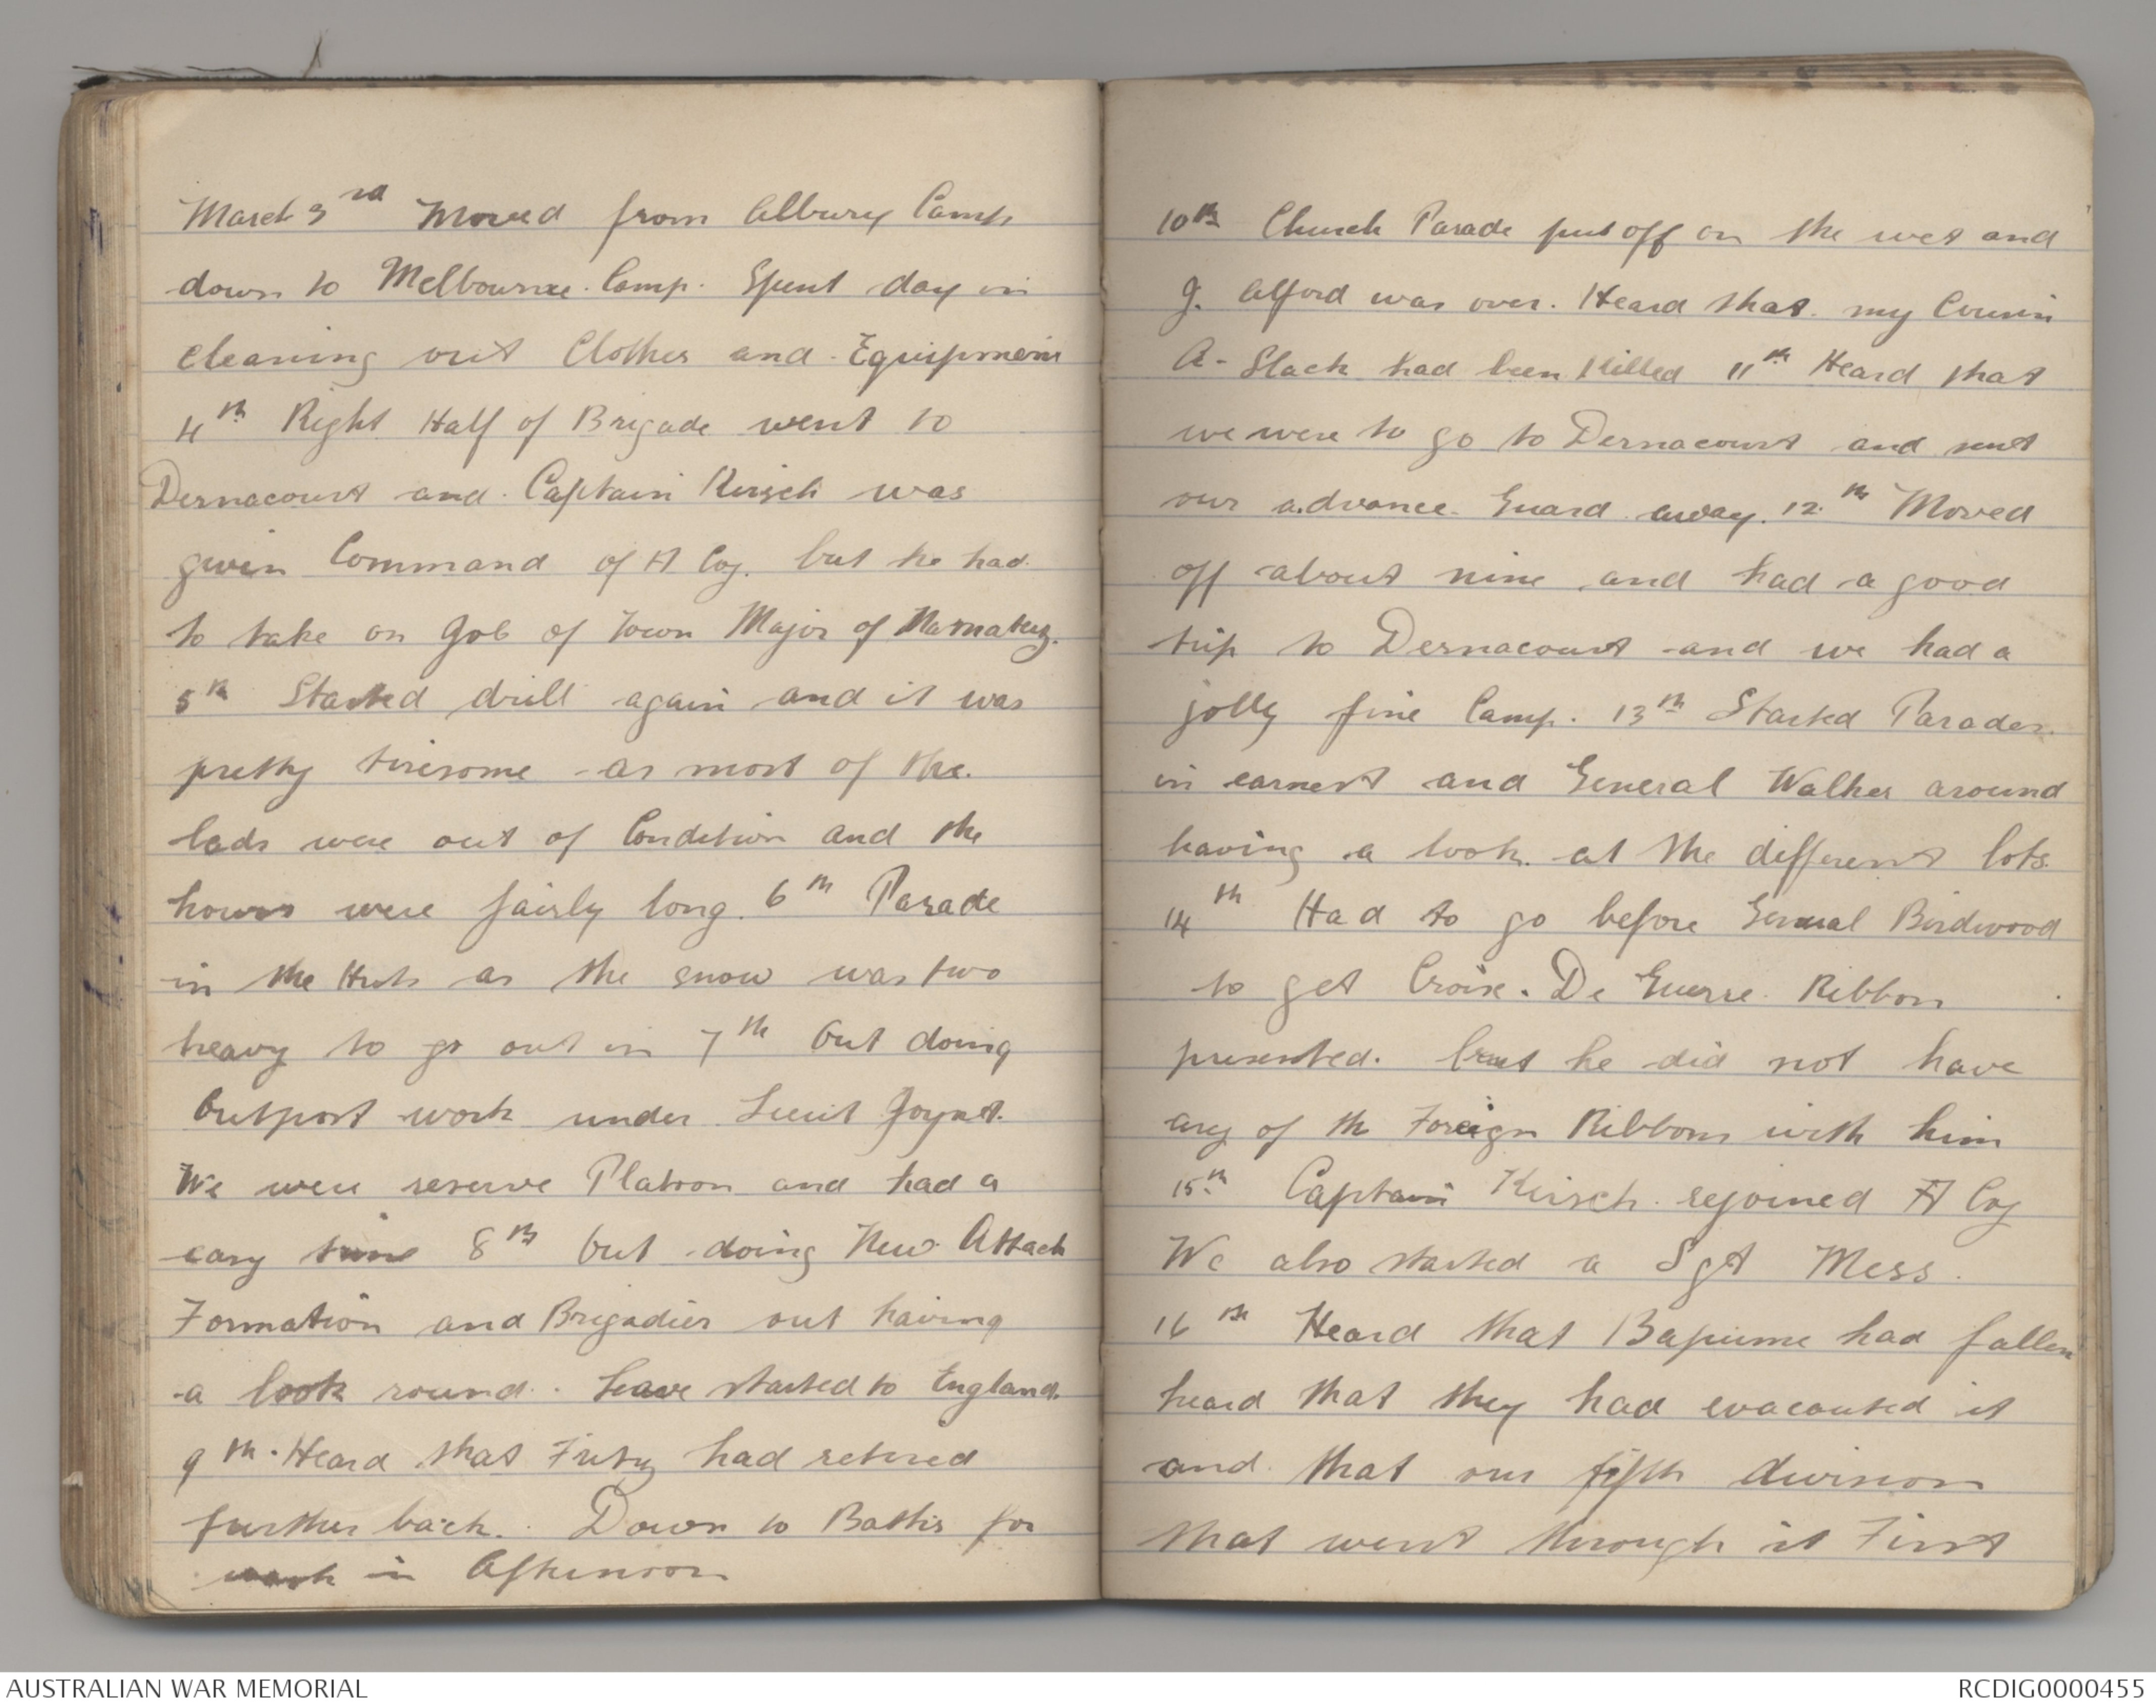 March 3rd Moved from Albury Camp
down to Melbourne Camp. Spent day in
cleaning out Clothes and Equipment
4th Right Half of Brigade went to
Dernacourt and Captain Kirsch was
given Command of A Coy. but he had
to take on Job of Town Major of Mamatez.
5th Started drill again and it was
pretty tiresome as most of the
lads were out of Condition and the
hours were fairly long. 6th Parade
in the Huts as the snow was two
heavy to go out in 7th Out doing
Outpost work under Lieut Joynt.
We were reserve Platoon and had a
easy time 8th Out doing New Attack
Formation and Brigadier out having
a look round. Leave started to England.
9th. Heard that Fritz had retired
further back. Down to Baths for
wash in Afternoon
10th Church Parade put off on the wet and
G. Alford was over. Heard that my Cousin
A. Slack had been Killed 11th Heard that
we were to go to Dernacourt and sent
our advance Guard away. 12th Moved
off about nine and had a good
trip to Dernacourt and we had a
jolly fine Camp. 13th Started Parades
in earnest and General Walker around
having a look at the different lots.
14th Had to go before General Birdwood
to get Croix. De Guerre Ribbon
presented. but he did not have
any of th Foreign Ribbons with him
15th Captain Kirsch rejoined A Coy
We also started a Sgt Mess.
16th Heard that Bapume had fallen
heard that they had evacauted it
and that our fifth division
that went through it First
AUSTRALIAN WAR MEMORIAL
RCDIG0000455